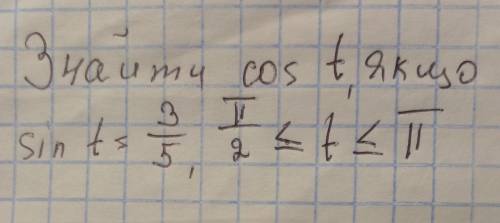 Знайти cos t, якщо
sin t = 3/5, π/2 ≤ t ≤ π